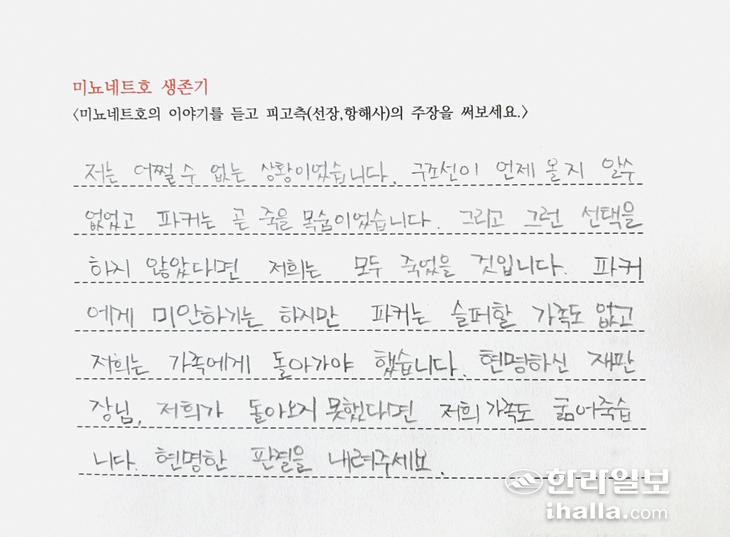 미뇨네트호 생존기
〈미뇨네트호의 이야기를 듣고 피고측(선장,항해사)의 주장을 써보세요.〉
저는 어쩔 수 없는 상황이었습니다. 구조선이 언제 올지 알수
없었고 파커는 곧 죽을 목숨이었습니다. 그리고 그런 선택을
하지 않았다면 저희는 모두 죽었을 것입니다. 파커
에게 미안하기는 하지만 파커는 슬퍼할 가족도 없고
저희는 가족에게 돌아가야 했습니다. 현명하신 재판
장님, 저희가 돌아오지 못했다면 저희 가족도 굶어죽습
니다. 현명한 판결을 내려주세요.
한라일보
ihalla.com